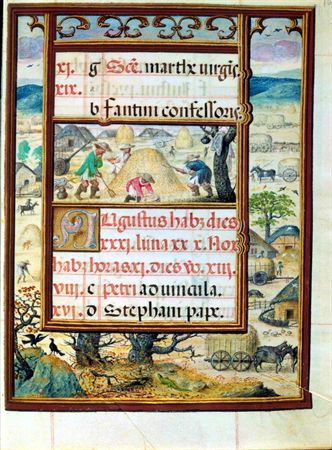 xi. g Sce. marthe virgis.
xix.
b fantini confessoris.
Augustus habz dies
xxxi. luna xxx. Nox
habz horas xi. dies vo. xiii.
viii. c petri ad vincula.
xvi. d Stephani pape.